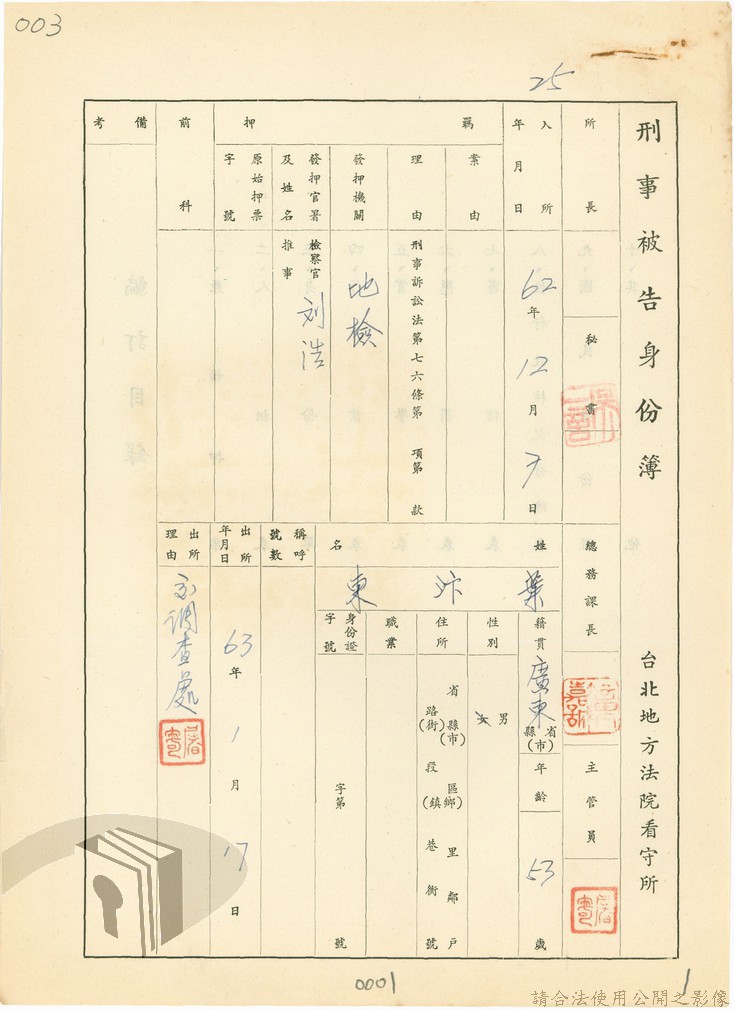 003
25
刑事被告身份簿
台北地方法院看守所
所長
秘書
總務課長
主管員
入所年月日
62年12月7日
羈押
案由
理由
刑事訴訟法第七六條第 項第 款
發押機關
地檢
發押官署及姓名
檢察官
推事
刘浩
原始押票字號
前科
備考
姓名
葉汴東
籍貫
廣東
省縣(市)
年齡
53歲
性別
男
女
住所
省縣(市)
區鄉(鎮)
里鄰戶
路(街)段巷衖號
職業
身份證字號
字第 號
稱呼號數
出所年月日
63年1月17日
出所理由
調查處
0001
1
請合法使用公開之影像